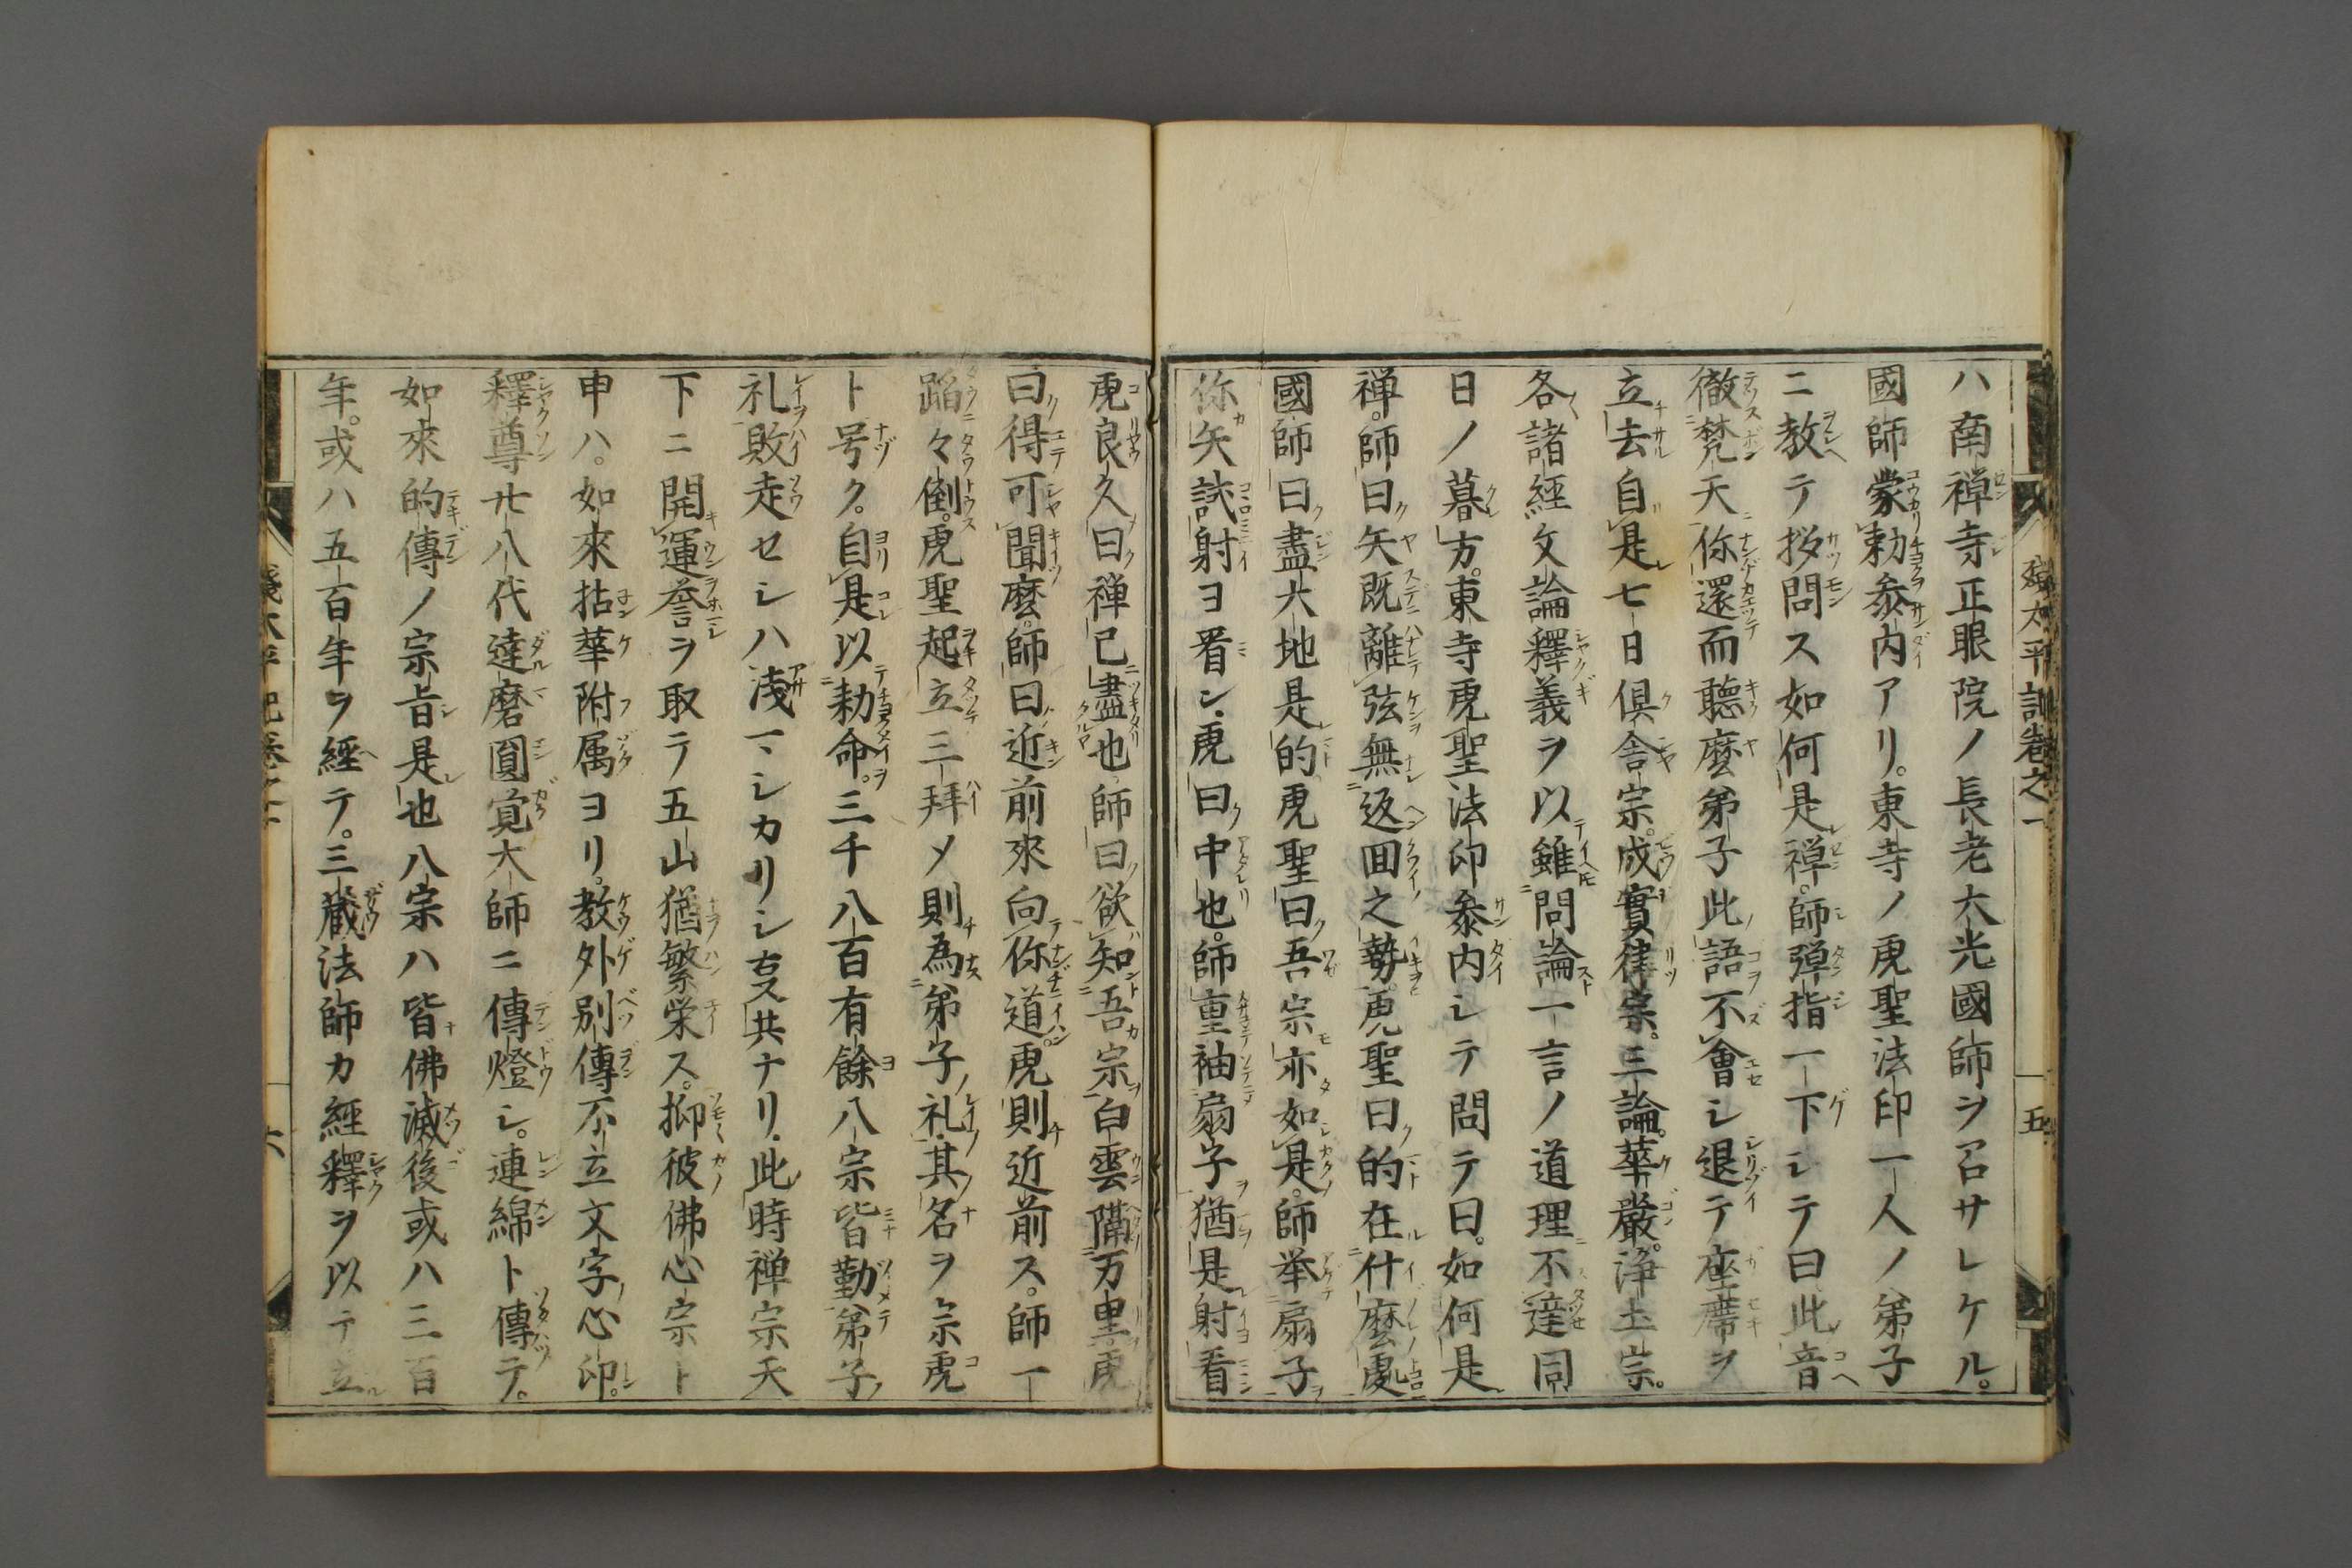 ハ南禅寺正眼院ノ長老大光國師ヲ召サレケル。
國師蒙勅参内アリ。東寺ノ虎聖法印一人ノ弟子
ニ教テ拶問ス如何是禅。師弾指一下シテ曰此音
徹梵天你還而聽麼弟子此語不會シ退テ座席ヲ
立去自是七日倶舎宗。成實律宗。三論。華嚴。浄土宗。
各諸經文論釋義ヲ以雖問論一言ノ道理不達同
日ノ暮方。東寺虎聖法印参内シテ問テ曰。如何是
禅。師曰矢既離弦無返回之勢。虎聖曰的在什麼處
國師曰盡大地是的。虎聖曰吾宗亦如是。師举扇子
你矢試射ヨ看ン。虎曰中也。師重袖扇子猶是射看
虎良久曰禅已盡也師曰欲知吾宗白雲隔万里虎
曰得可聞麼。師曰近前来向你道。虎則近前ス。師一
蹈々倒。虎聖起立三拝メ則為弟子礼。其名ヲ宗虎
ト号ク。自是以勅命。三千八百有餘八宗皆勤弟子
礼敗走セシハ浅一シカリシ支共ナリ。此時禅宗天
下ニ開運誉ヲ取テ五山猶繁栄ス。抑彼佛心宗ト
申ハ。如來拈華附属ヨリ。教外別傳不立文字心印。
釋尊廿八代達磨圓覚大師ニ傳燈シ。連綿ト傳テ。
如來的傳ノ宗旨是也八宗ハ皆佛滅後或ハ三百
年。或ハ五百年ヲ經テ。三蔵法師カ經釋ヲ以テ立